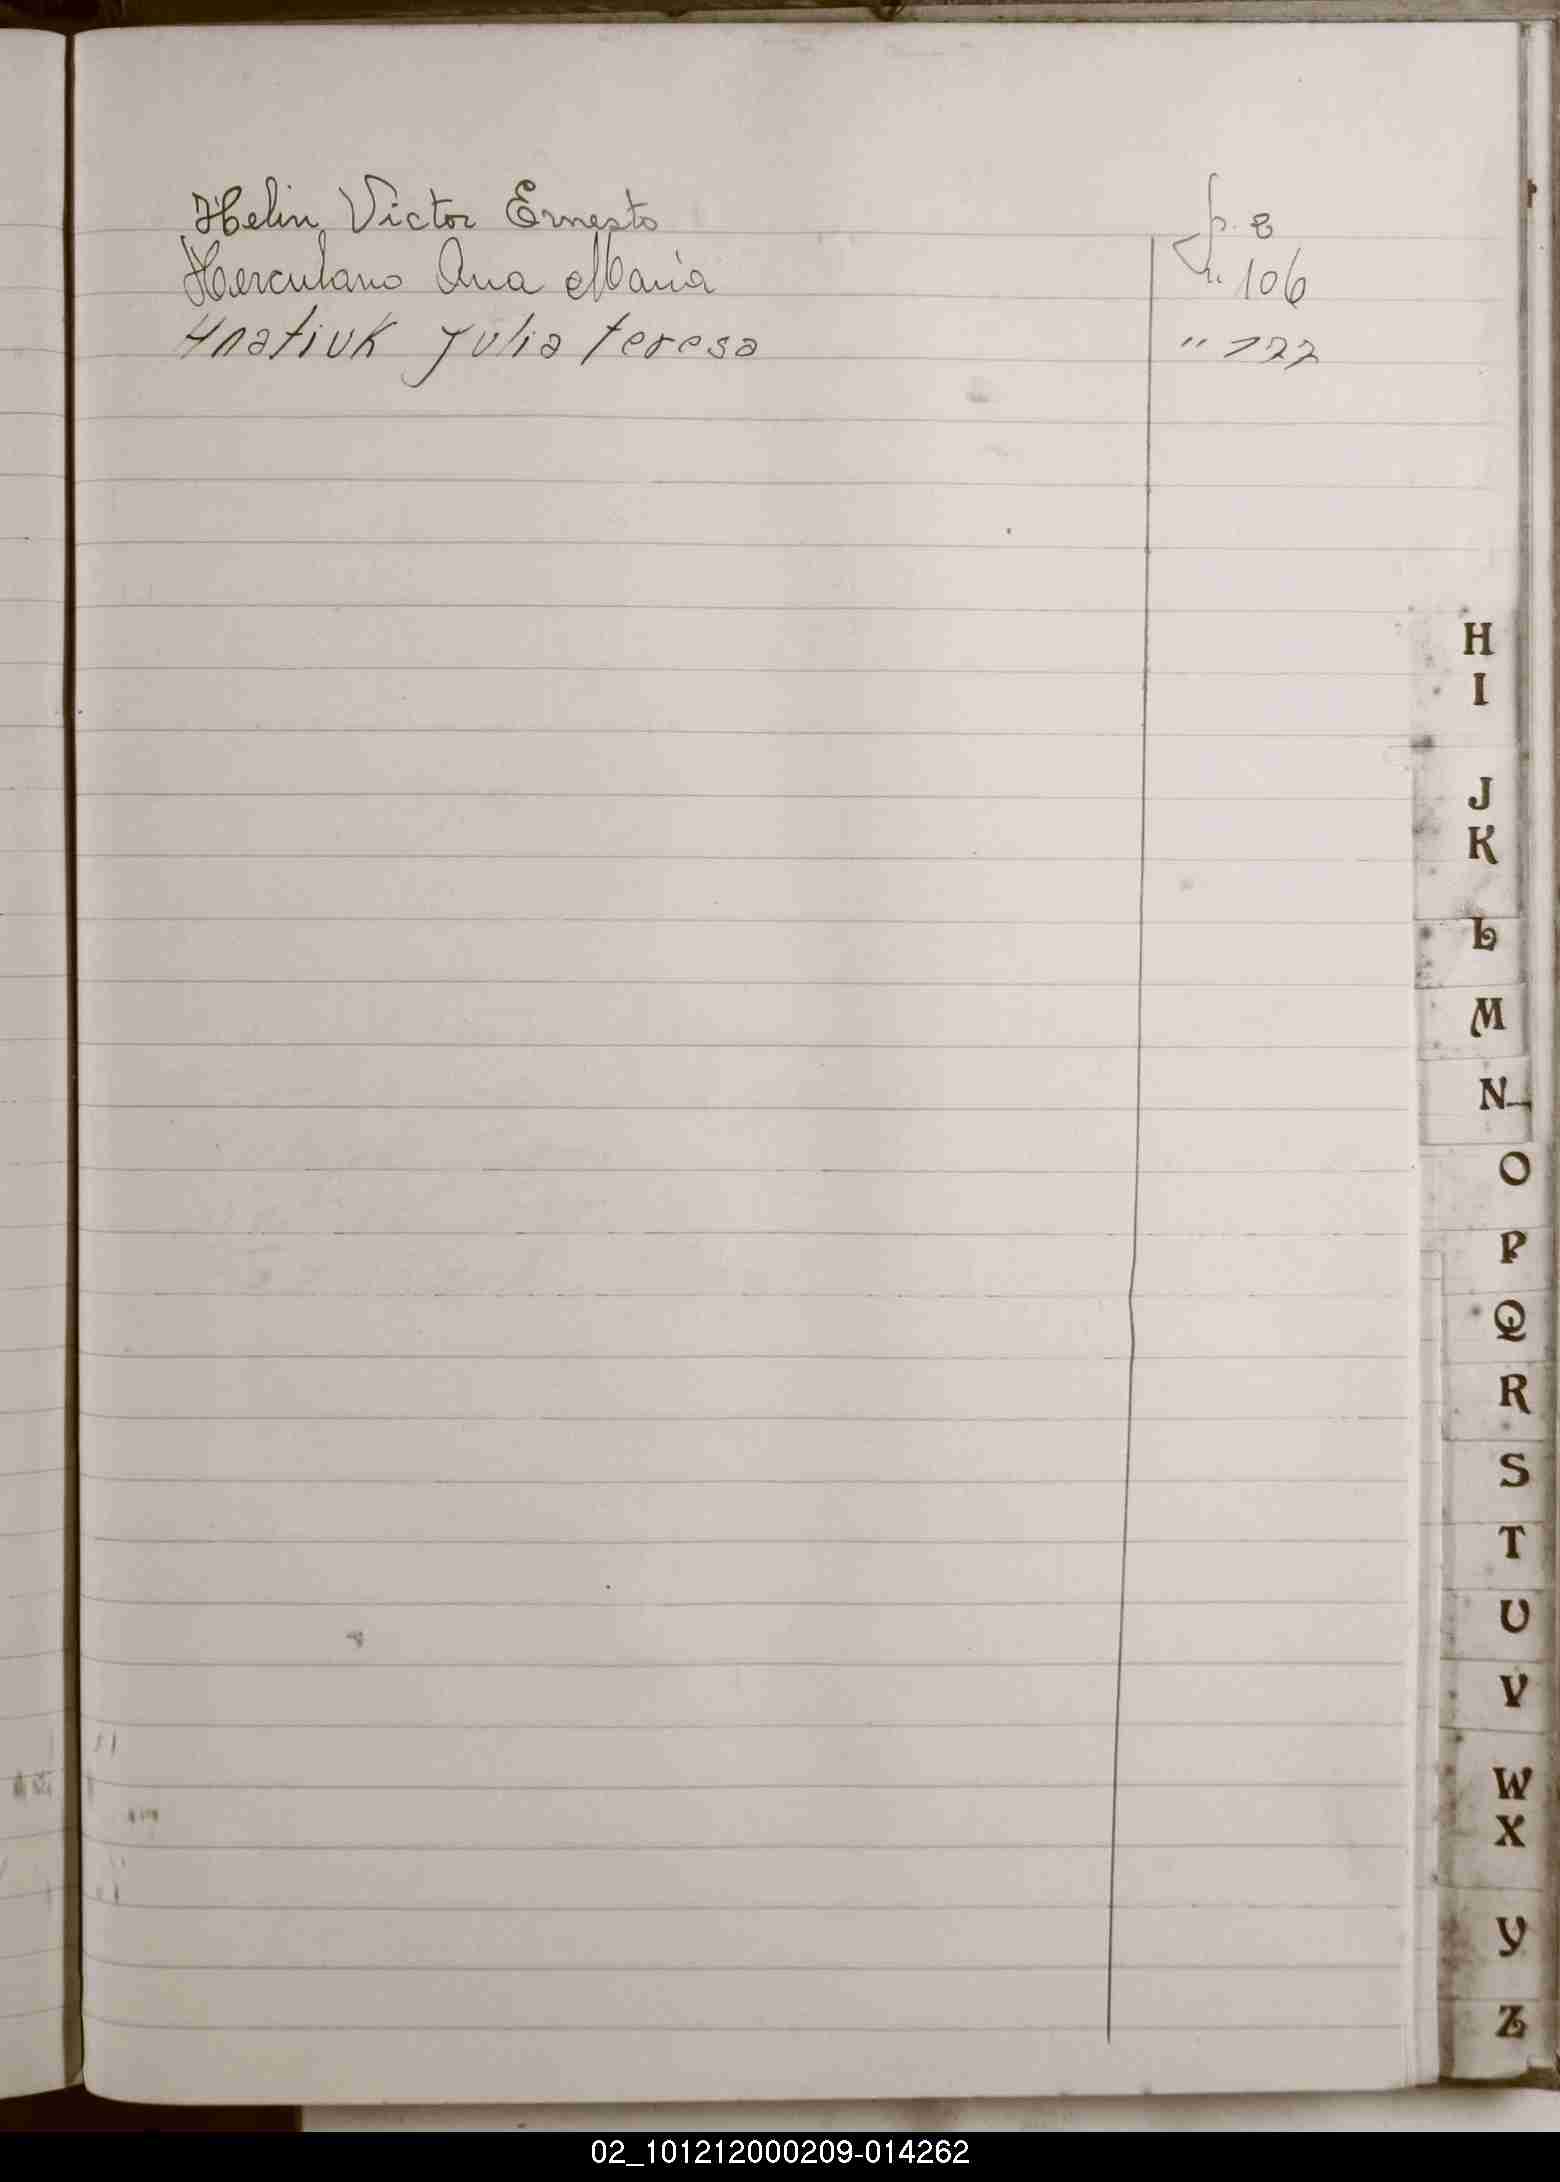 Helin Victor Ernesto p. 8
Herculano Ana Maria " 106
Hnatiuk Julia teresa " 122
H
I
J
K
L
M
N
O
P
Q
R
S
T
U
V
W
X
Y
Z
02_101212000209-014262